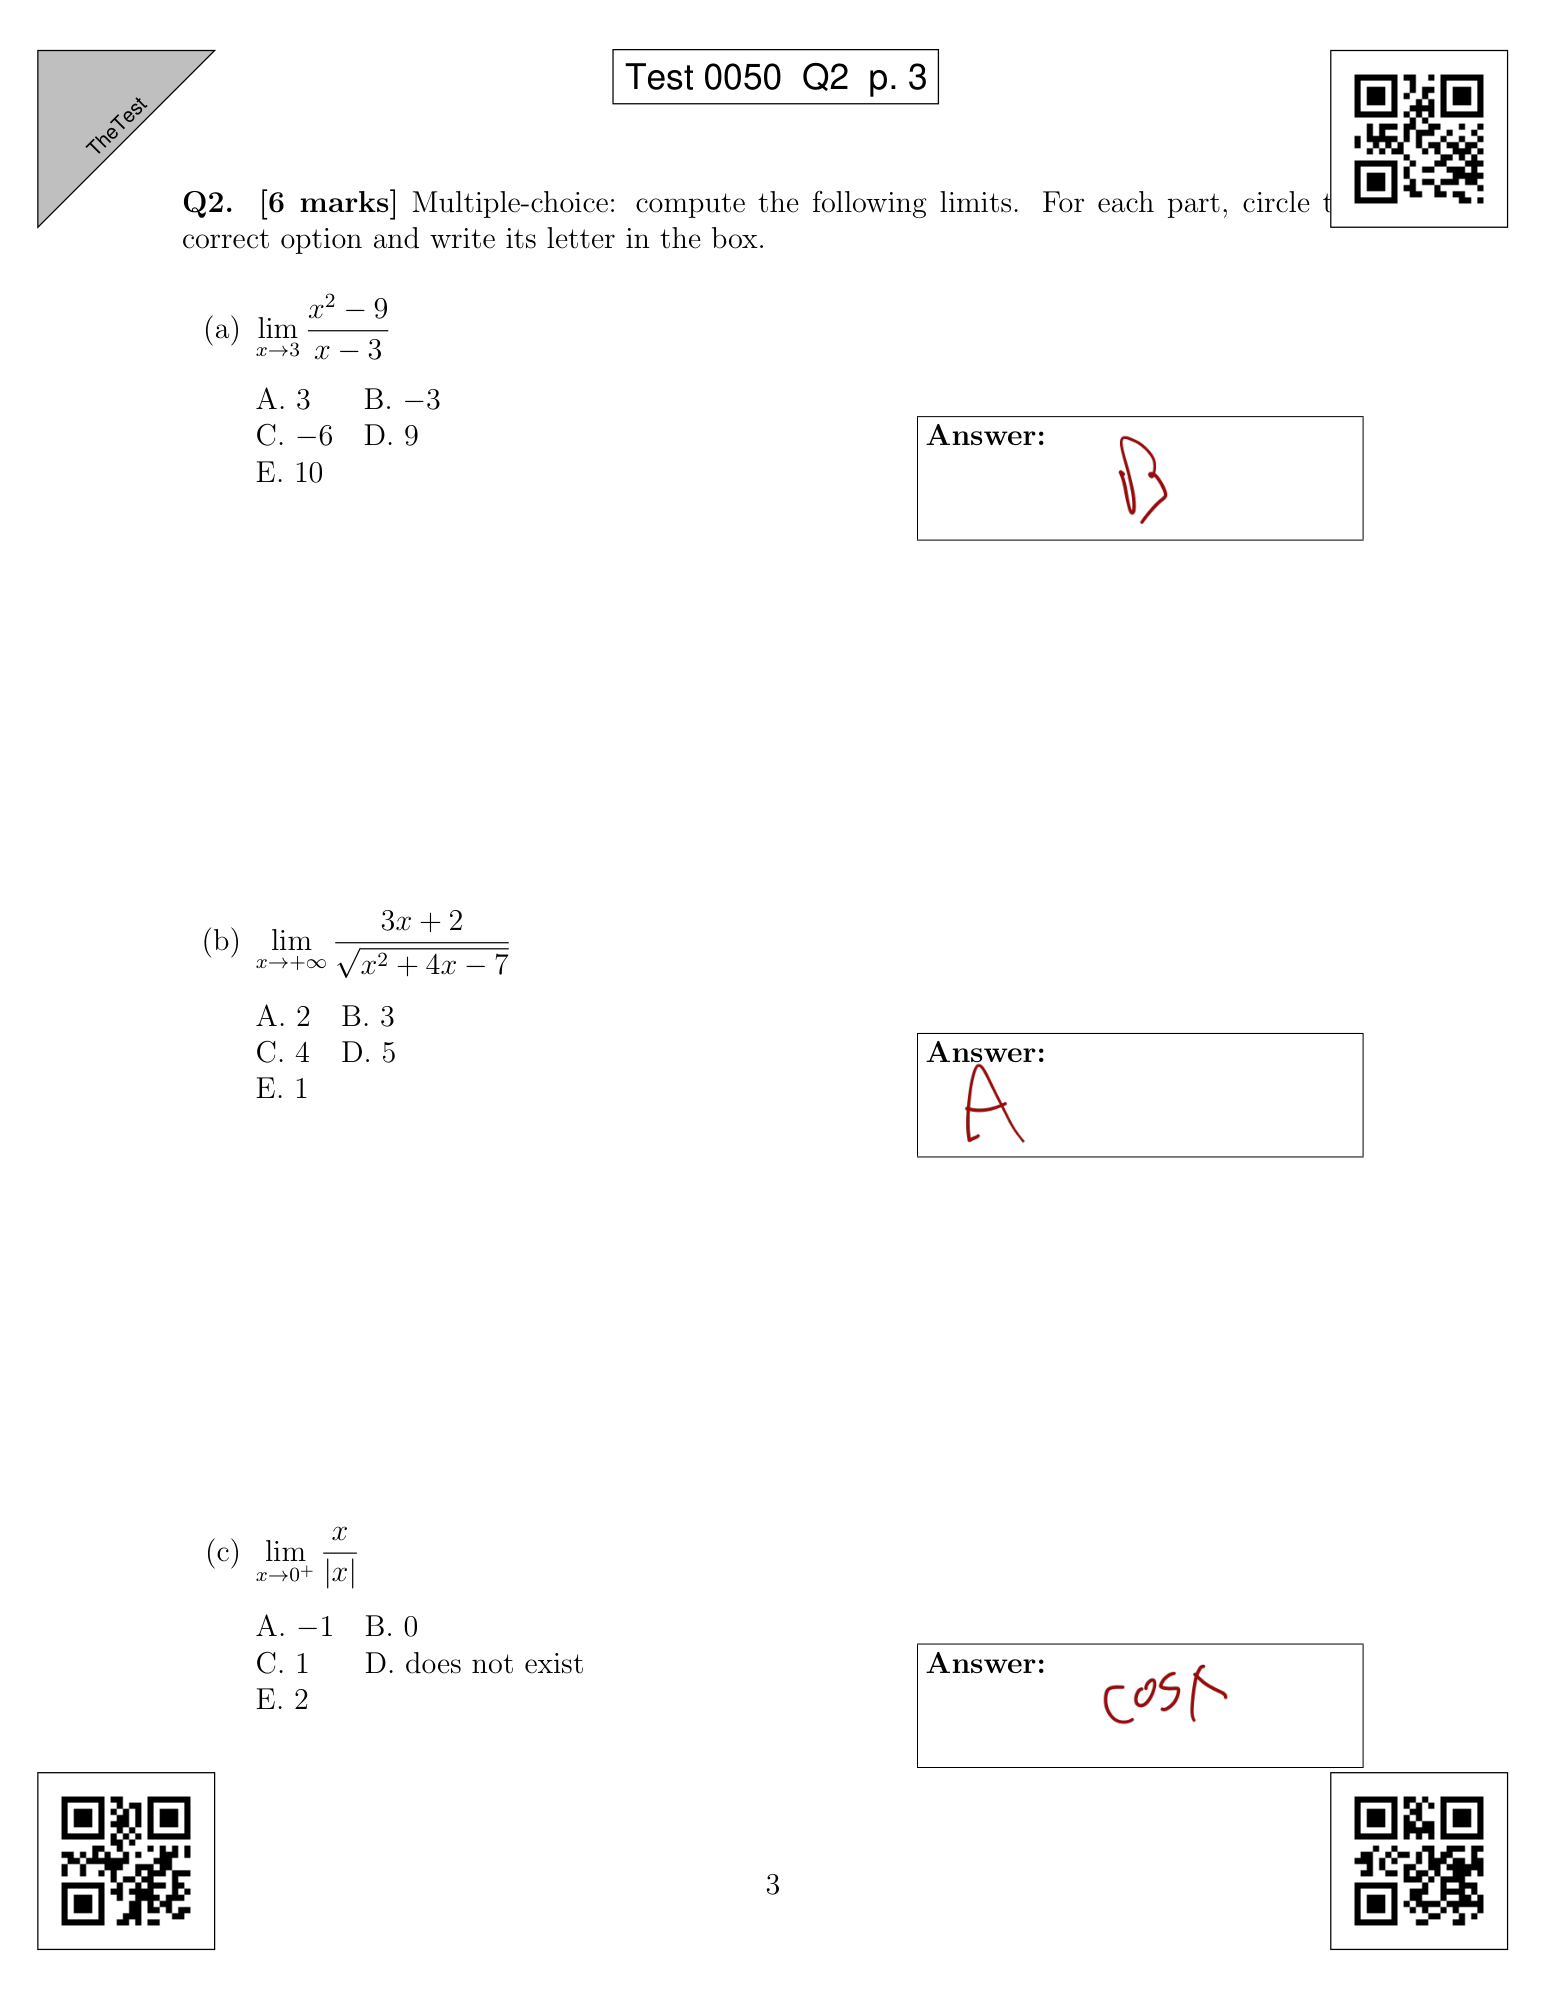 TheTest
Test 0050 Q2 p. 3
Q2. [6 marks] Multiple-choice: compute the following limits. For each part, circle t
correct option and write its letter in the box.
(a) lim_{x→3} \frac{x^2 − 9}{x − 3}
A. 3 B. −3
C. −6 D. 9
E. 10
Answer:
B
(b) lim_{x→+∞} \frac{3x + 2}{\sqrt{x^2 + 4x − 7}}
A. 2 B. 3
C. 4 D. 5
E. 1
Answer:
A
(c) lim_{x→0^+} \frac{x}{|x|}
A. −1 B. 0
C. 1 D. does not exist
E. 2
Answer:
3